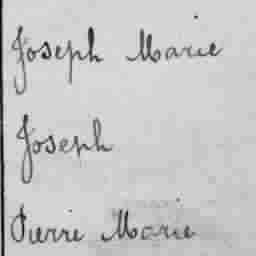 Joseph Marie
Joseph
Pierre Marie